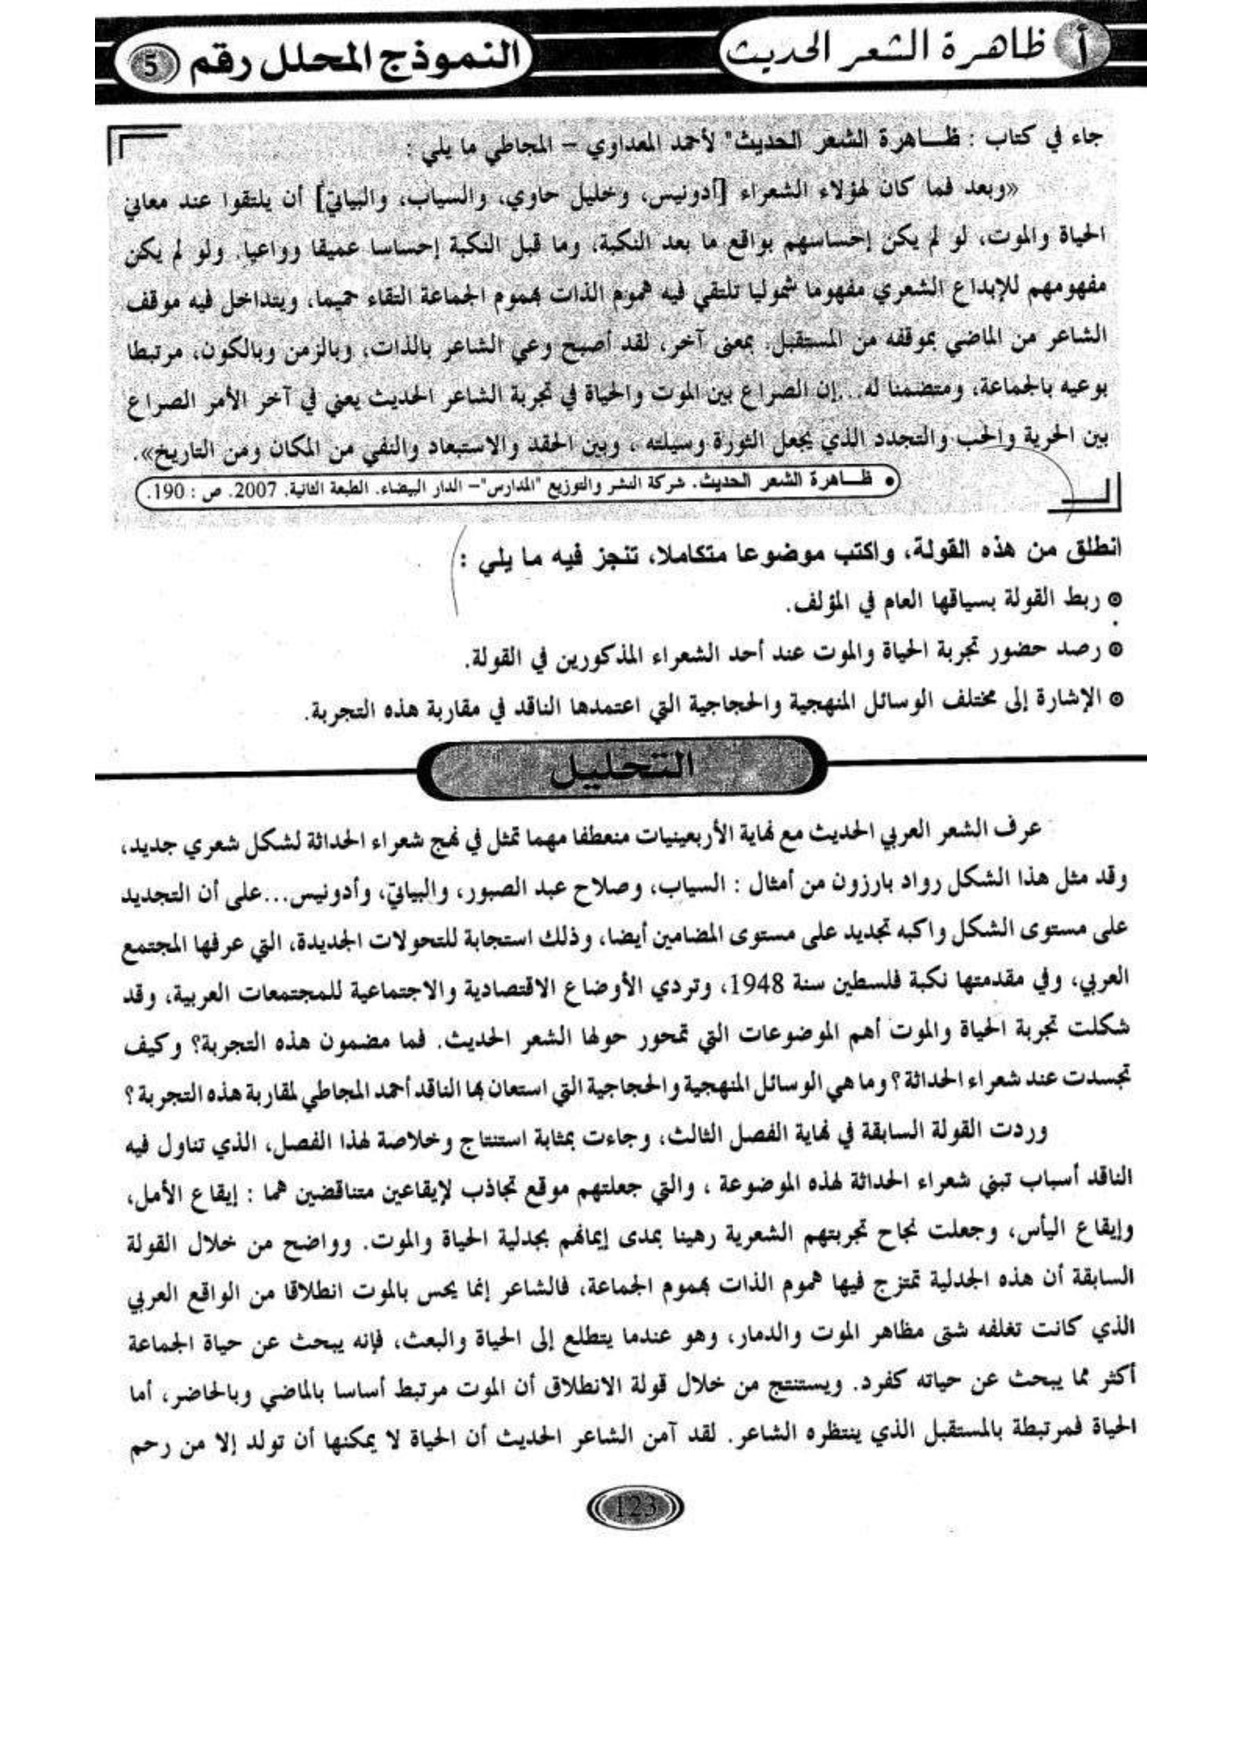 أ ظاهرة الشعر الحديث
النموذج المحلل رقم 5
جاء في كتاب : ظـاهرة الشعر الحديث" لأحمد المعداوي – المجاطي ما يلي :
«وبعد فما كان لهؤلاء الشعراء [أدونيس، وخليل حاوي، والسياب، والبياتي] أن يلتقوا عند معاني
الحياة والموت، لو لم يكن إحساسهم بواقع ما بعد النكبة، وما قبل النكبة إحساسا عميقا وواعيا. ولو لم يكن
مفهومهم للإبداع الشعري مفهوما شموليا تلتقي فيه هموم الذات بهموم الجماعة التقاء حميما، ويتداخل فيه موقف
الشاعر من الماضي بموقفه من المستقبل. بمعنى آخر، لقد أصبح وعي الشاعر بالذات، وبالزمن وبالكون، مرتبطا
بوعيه بالجماعة، ومتضمنا له...إن الصراع بين الموت والحياة في تجربة الشاعر الحديث يعني في آخر الأمر الصراع
بين الحرية والحب والتجدد الذي يجعل الثورة وسيلته ، وبين الحقد والاستبعاد والنفي من المكان ومن التاريخ».
• ظـاهرة الشعر الحديث. شركة النشر والتوزيع "المدارس"– الدار البيضاء. الطبعة الثانية. 2007. ص : 190.
انطلق من هذه القولة، واكتب موضوعا متكاملا، تنجز فيه ما يلي :
⊙ ربط القولة بسياقها العام في المؤلف.
⊙ رصد حضور تجربة الحياة والموت عند أحد الشعراء المذكورين في القولة.
⊙ الإشارة إلى مختلف الوسائل المنهجية والحجاجية التي اعتمدها الناقد في مقاربة هذه التجربة.
التحليل
عرف الشعر العربي الحديث مع نهاية الأربعينيات منعطفا مهما تمثل في نهج شعراء الحداثة لشكل شعري جديد،
وقد مثل هذا الشكل رواد بارزون من أمثال : السياب، وصلاح عبد الصبور، والبياتي، وأدونيس...على أن التجديد
على مستوى الشكل واكبه تجديد على مستوى المضامين أيضا، وذلك استجابة للتحولات الجديدة، التي عرفها المجتمع
العربي، وفي مقدمتها نكبة فلسطين سنة 1948، وتردي الأوضاع الاقتصادية والاجتماعية للمجتمعات العربية، وقد
شكلت تجربة الحياة والموت أهم الموضوعات التي تمحور حولها الشعر الحديث. فما مضمون هذه التجربة؟ وكيف
تجسدت عند شعراء الحداثة؟ وما هي الوسائل المنهجية والحجاجية التي استعان بها الناقد أحمد المجاطي لمقاربة هذه التجربة؟
وردت القولة السابقة في نهاية الفصل الثالث، وجاءت بمثابة استنتاج وخلاصة لهذا الفصل، الذي تناول فيه
الناقد أسباب تبني شعراء الحداثة لهذه الموضوعة ، والتي جعلتهم موقع تجاذب لإيقاعين متناقضين هما : إيقاع الأمل،
وإيقاع اليأس، وجعلت نجاح تجربتهم الشعرية رهينا بمدى إيمانهم بجدلية الحياة والموت. وواضح من خلال القولة
السابقة أن هذه الجدلية تمتزج فيها هموم الذات بهموم الجماعة، فالشاعر إنما يحس بالموت انطلاقا من الواقع العربي
الذي كانت تغلفه شتى مظاهر الموت والدمار، وهو عندما يتطلع إلى الحياة والبعث، فإنه يبحث عن حياة الجماعة
أكثر مما يبحث عن حياته كفرد. ويستنتج من خلال قولة الانطلاق أن الموت مرتبط أساسا بالماضي وبالحاضر، أما
الحياة فمرتبطة بالمستقبل الذي ينتظره الشاعر. لقد آمن الشاعر الحديث أن الحياة لا يمكنها أن تولد إلا من رحم
123